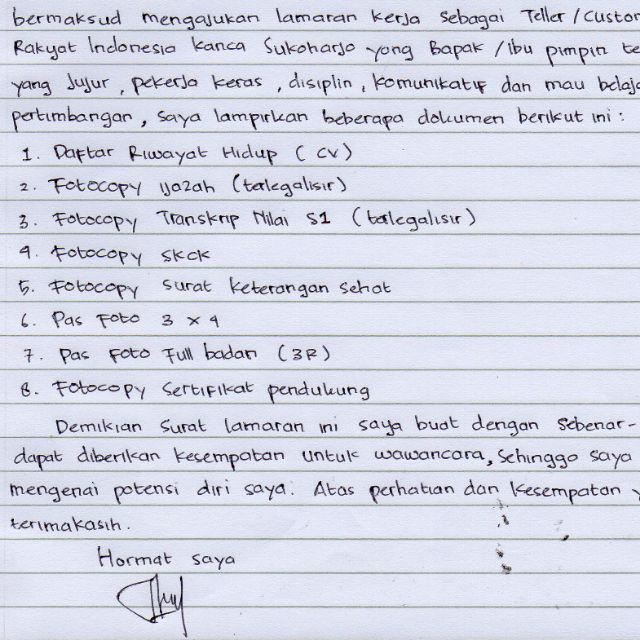 bermaksud mengajukan lamaran kerja sebagai Teller / Custom
Rakyat Indonesia Kanca Sukoharjo yang Bapak / Ibu pimpin te
yang jujur, pekerja keras, disiplin, komunikatif dan mau belaja
pertimbangan, saya lampirkan beberapa dokumen berikut ini :
1. Daftar Riwayat Hidup ( CV )
2. Fotocopy Ijazah (terlegalisir)
3. Fotocopy Transkrip Nilai S1 (terlegalisir)
4. Fotocopy SKCK
5. Fotocopy Surat Keterangan Sehat
6. Pas Foto 3 x 4
7. Pas Foto Full badan (3R)
8. Fotocopy Sertifikat pendukung
Demikian Surat lamaran ini saya buat dengan sebenar-
dapat diberikan kesempatan untuk wawancara, Sehingga saya
mengenai potensi diri saya. Atas perhatian dan kesempatan y
terimakasih.
Hormat saya